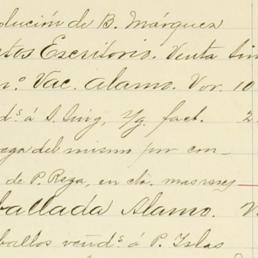 olución de B. Márquez
ntes Escritorio. Venta Gin
n.º Vac. Alamo. Vor. 10
d.s á S. Sing, s/g fact. 2
aga del mismo por con-
de P. Reza, en cta. mas rcy
ballada Alamo. V
ballos vend.s á P. Islas